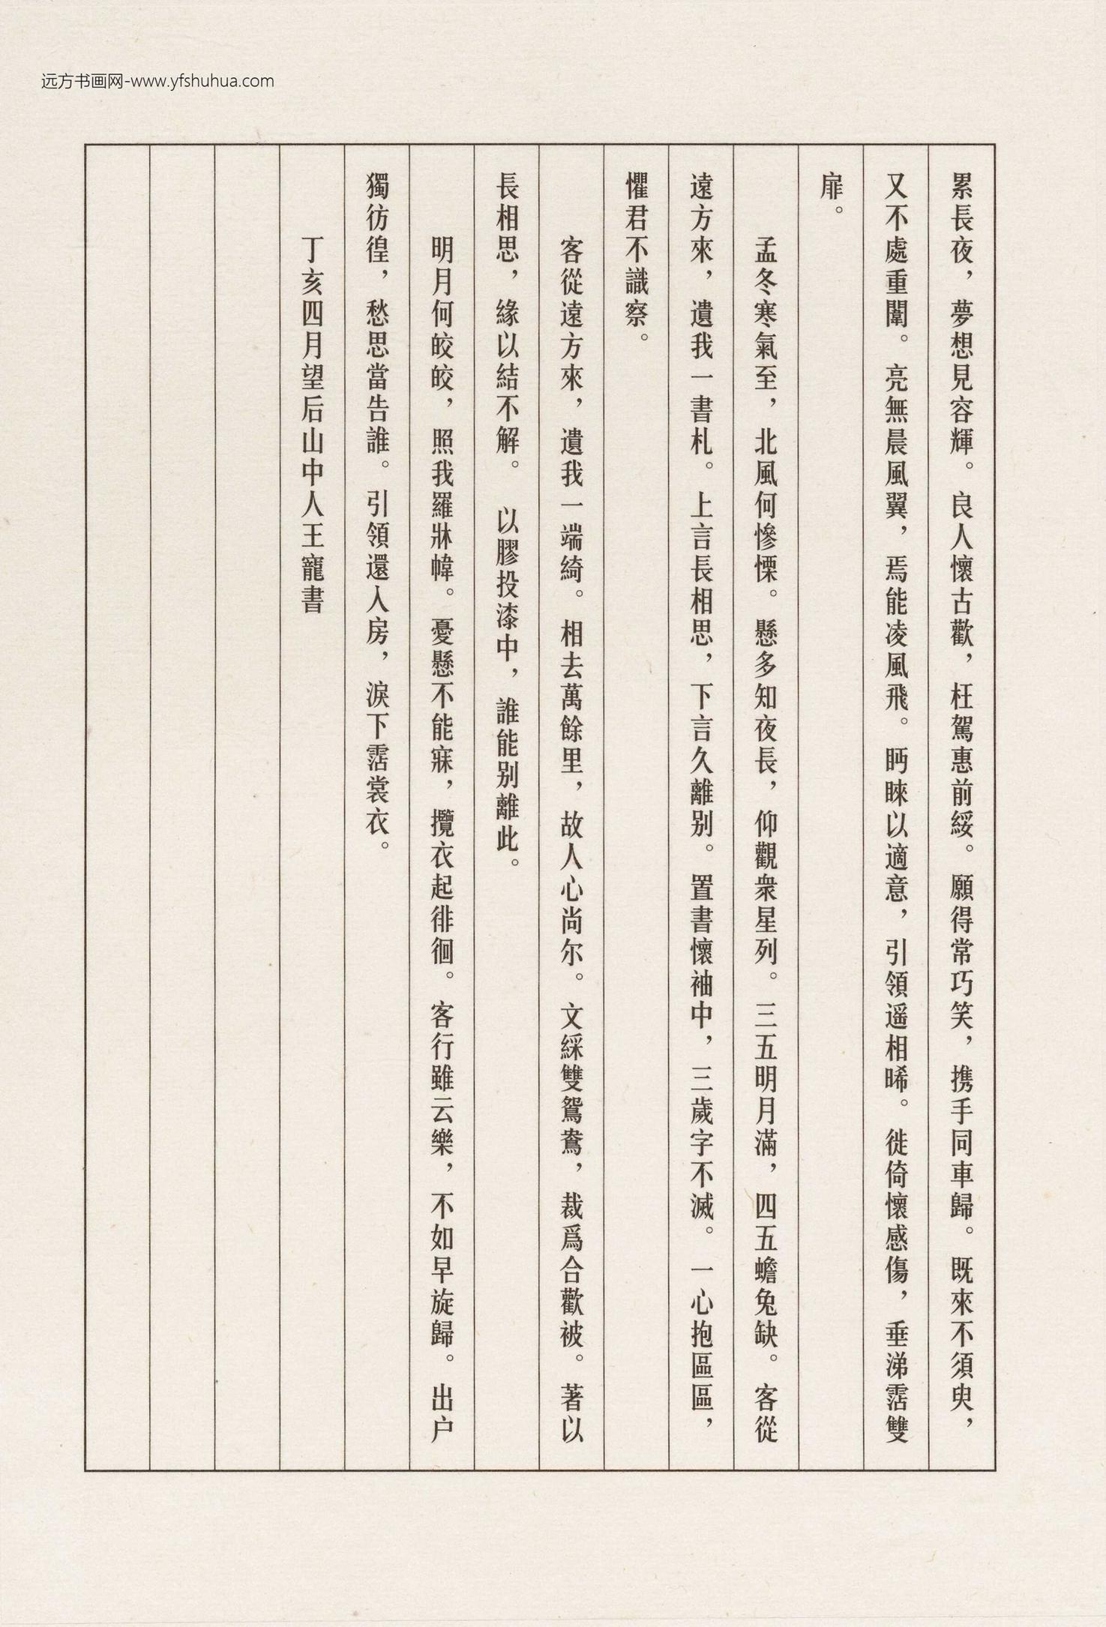 远方书画网-www.yfshuhua.com
累長夜，夢想見容輝。良人懷古歡，枉駕惠前綏。願得常巧笑，携手同車歸。既來不須臾，
又不處重闈。亮無晨風翼，焉能凌風飛。眄睞以適意，引領遥相晞。徙倚懷感傷，垂涕霑雙
扉。
孟冬寒氣至，北風何慘慄。懸多知夜長，仰觀衆星列。三五明月滿，四五蟾兔缺。客從
遠方來，遺我一書札。上言長相思，下言久離别。置書懷袖中，三歲字不滅。一心抱區區，
懼君不識察。
客從遠方來，遺我一端綺。相去萬餘里，故人心尚尔。文綵雙鴛鴦，裁爲合歡被。著以
長相思，緣以結不解。以膠投漆中，誰能别離此。
明月何皎皎，照我羅牀幃。憂懸不能寐，攬衣起徘徊。客行雖云樂，不如早旋歸。出户
獨彷徨，愁思當告誰。引領還入房，淚下霑裳衣。
丁亥四月望后山中人王寵書